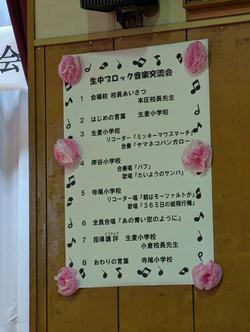 会
生中ブロック音楽交流会
1 会場校 校長あいさつ
本庄校長先生
2 はじめの言葉 生麦小学校
3 生麦小学校
リコーダー「ミッキーマウスマーチ」
合奏「ヤマネコバンガロー」
4 岸谷小学校
合奏唱「パフ」
歌唱「たいようのサンバ」
5 寺尾小学校
リコーダー唱「朝はモーツァルトが」
歌唱「365日の紙飛行機」
6 全員合唱「あの青い空のように」
7 指導講評 生麦小学校
小倉校長先生
8 おわりの言葉 寺尾小学校